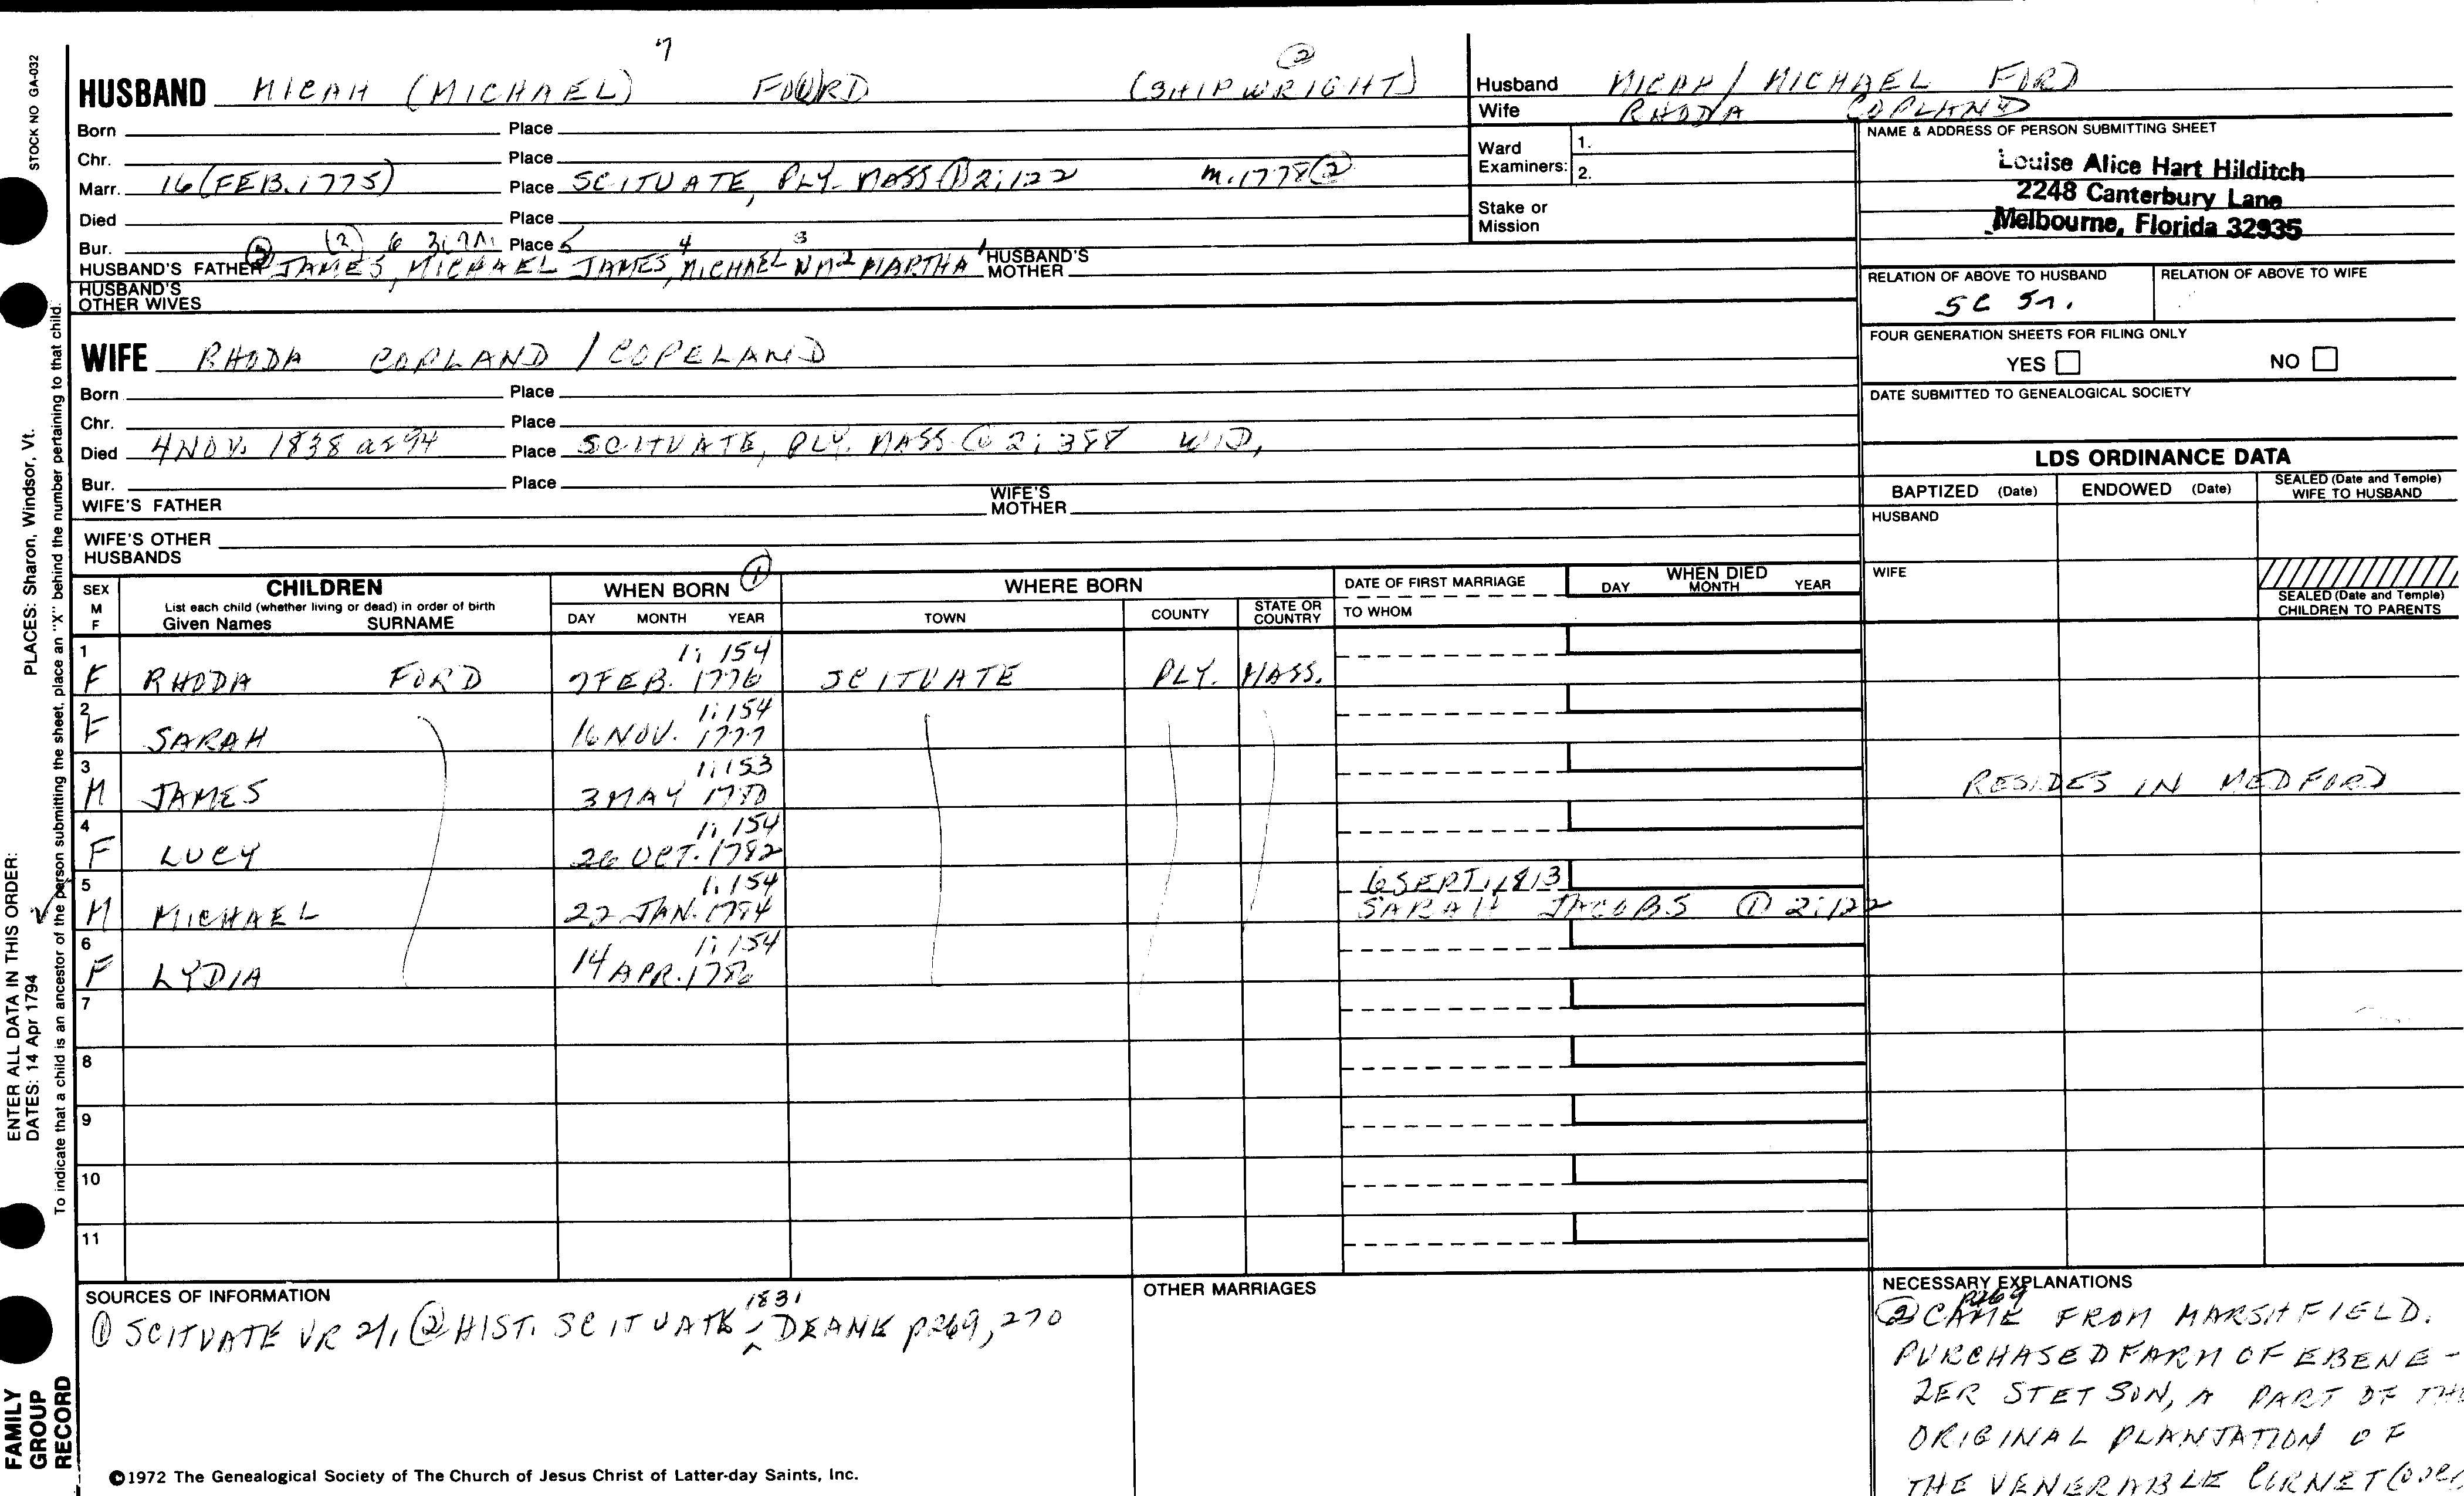 STOCK NO GA-032
7
②
HUSBAND MICAH (MICHAEL) FO(O)RD (SHIPWRIGHT)
Born Place
Chr. Place
Marr. 16 (FEB. 1775) Place SCITUATE, PLY. MASS ① 2:122 m. 1778 ②
Died Place
Bur. Place
② (2) 6 5 4 3
HUSBAND'S FATHER JAMES, MICHAEL JAMES, MICHAEL MARTHA HUSBAND'S MOTHER
HUSBAND'S OTHER WIVES
WIFE RHODA COPLAND / COPELAND
Born Place
Chr. Place
Died 4 NOV. 1838 ae 94 Place SCITUATE, PLY. MASS ① 2:388 WID.
Bur. Place
WIFE'S FATHER WIFE'S MOTHER
WIFE'S OTHER HUSBANDS
Husband MICAH / MICHAEL FORD
Wife RHODA COPLAND
Ward Examiners: 1.
2.
Stake or Mission
NAME & ADDRESS OF PERSON SUBMITTING SHEET
Louise Alice Hart Hilditch
2248 Canterbury Lane
Melbourne, Florida 32935
RELATION OF ABOVE TO HUSBAND RELATION OF ABOVE TO WIFE
5C 5r.
FOUR GENERATION SHEETS FOR FILING ONLY
YES NO
DATE SUBMITTED TO GENEALOGICAL SOCIETY
LDS ORDINANCE DATA
BAPTIZED (Date) ENDOWED (Date) SEALED (Date and Temple) WIFE TO HUSBAND
HUSBAND
WIFE
SEALED (Date and Temple) CHILDREN TO PARENTS
SEX M F
CHILDREN
List each child (whether living or dead) in order of birth
Given Names SURNAME
WHEN BORN ①
DAY MONTH YEAR
WHERE BORN
TOWN COUNTY STATE OR COUNTRY
DATE OF FIRST MARRIAGE
TO WHOM
WHEN DIED
DAY MONTH YEAR
1 1:154
F RHODA FORD 7 FEB. 1776 SCITUATE PLY. MASS.
2 1:154
F SARAH 16 NOV. 1777
3 1:153
M JAMES 3 MAY 1780 RESIDES IN MEDFORD
4 1:154
F LUCY 26 OCT. 1782
5 1:154 6 SEPT. 1813
M MICHAEL 22 JAN. 1784 SARAH JACOBS ① 2:122
6 1:154
F LYDIA 14 APR. 1786
7
8
9
10
11
SOURCES OF INFORMATION
① SCITUATE VR 2/1, ② HIST. SCITUATE - 1831 DEANE p269, 270
OTHER MARRIAGES
NECESSARY EXPLANATIONS
p269
② CAME FROM MARSHFIELD.
PURCHASED FARM OF EBENE-
ZER STETSON, A PART OF THE
ORIGINAL PLANTATION OF
THE VENERABLE CORNET (over
©1972 The Genealogical Society of The Church of Jesus Christ of Latter-day Saints, Inc.
ENTER ALL DATA IN THIS ORDER:
DATES: 14 Apr 1794
PLACES: Sharon, Windsor, Vt.
To indicate that a child is an ancestor of the person submitting the sheet, place an "X" behind the number pertaining to that child.
FAMILY
GROUP
RECORD